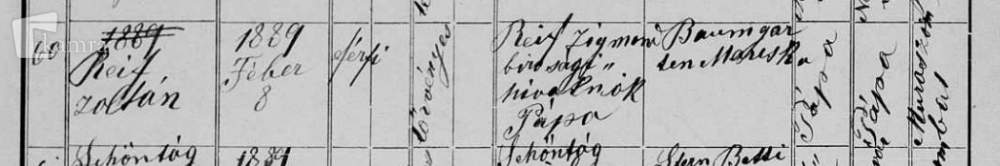 60
1889
Reif
Zoltán
1889
Feber
8
férfi
törvényes
Reif Zigmond
birosagi
hivatnok
Pápa
Baumgar
ten Mariska
Pápa
Pápa
Muraszom
bat
Schöntág
1889
Schöntág
Stern Betti